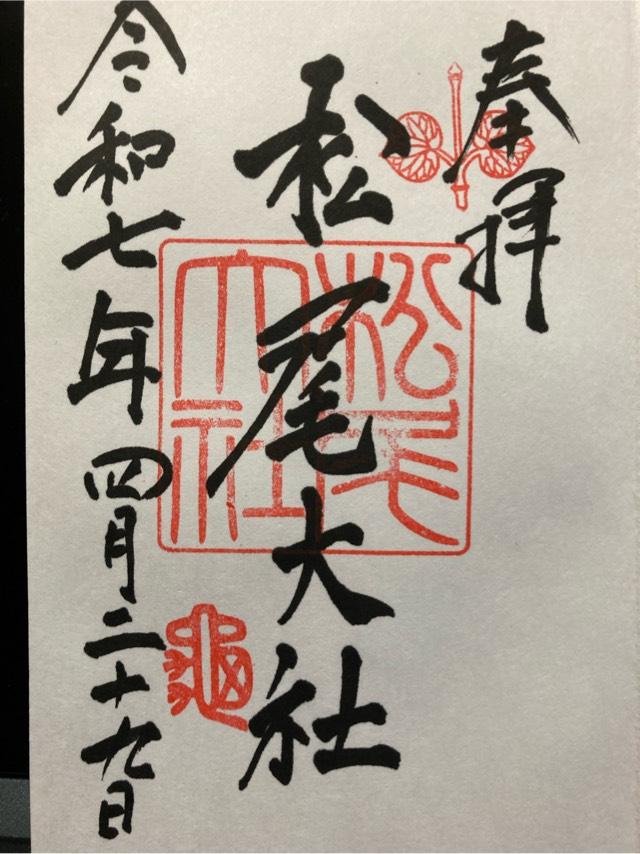 奉拝
松尾大社
松尾大社
龜
令和七年四月二十九日